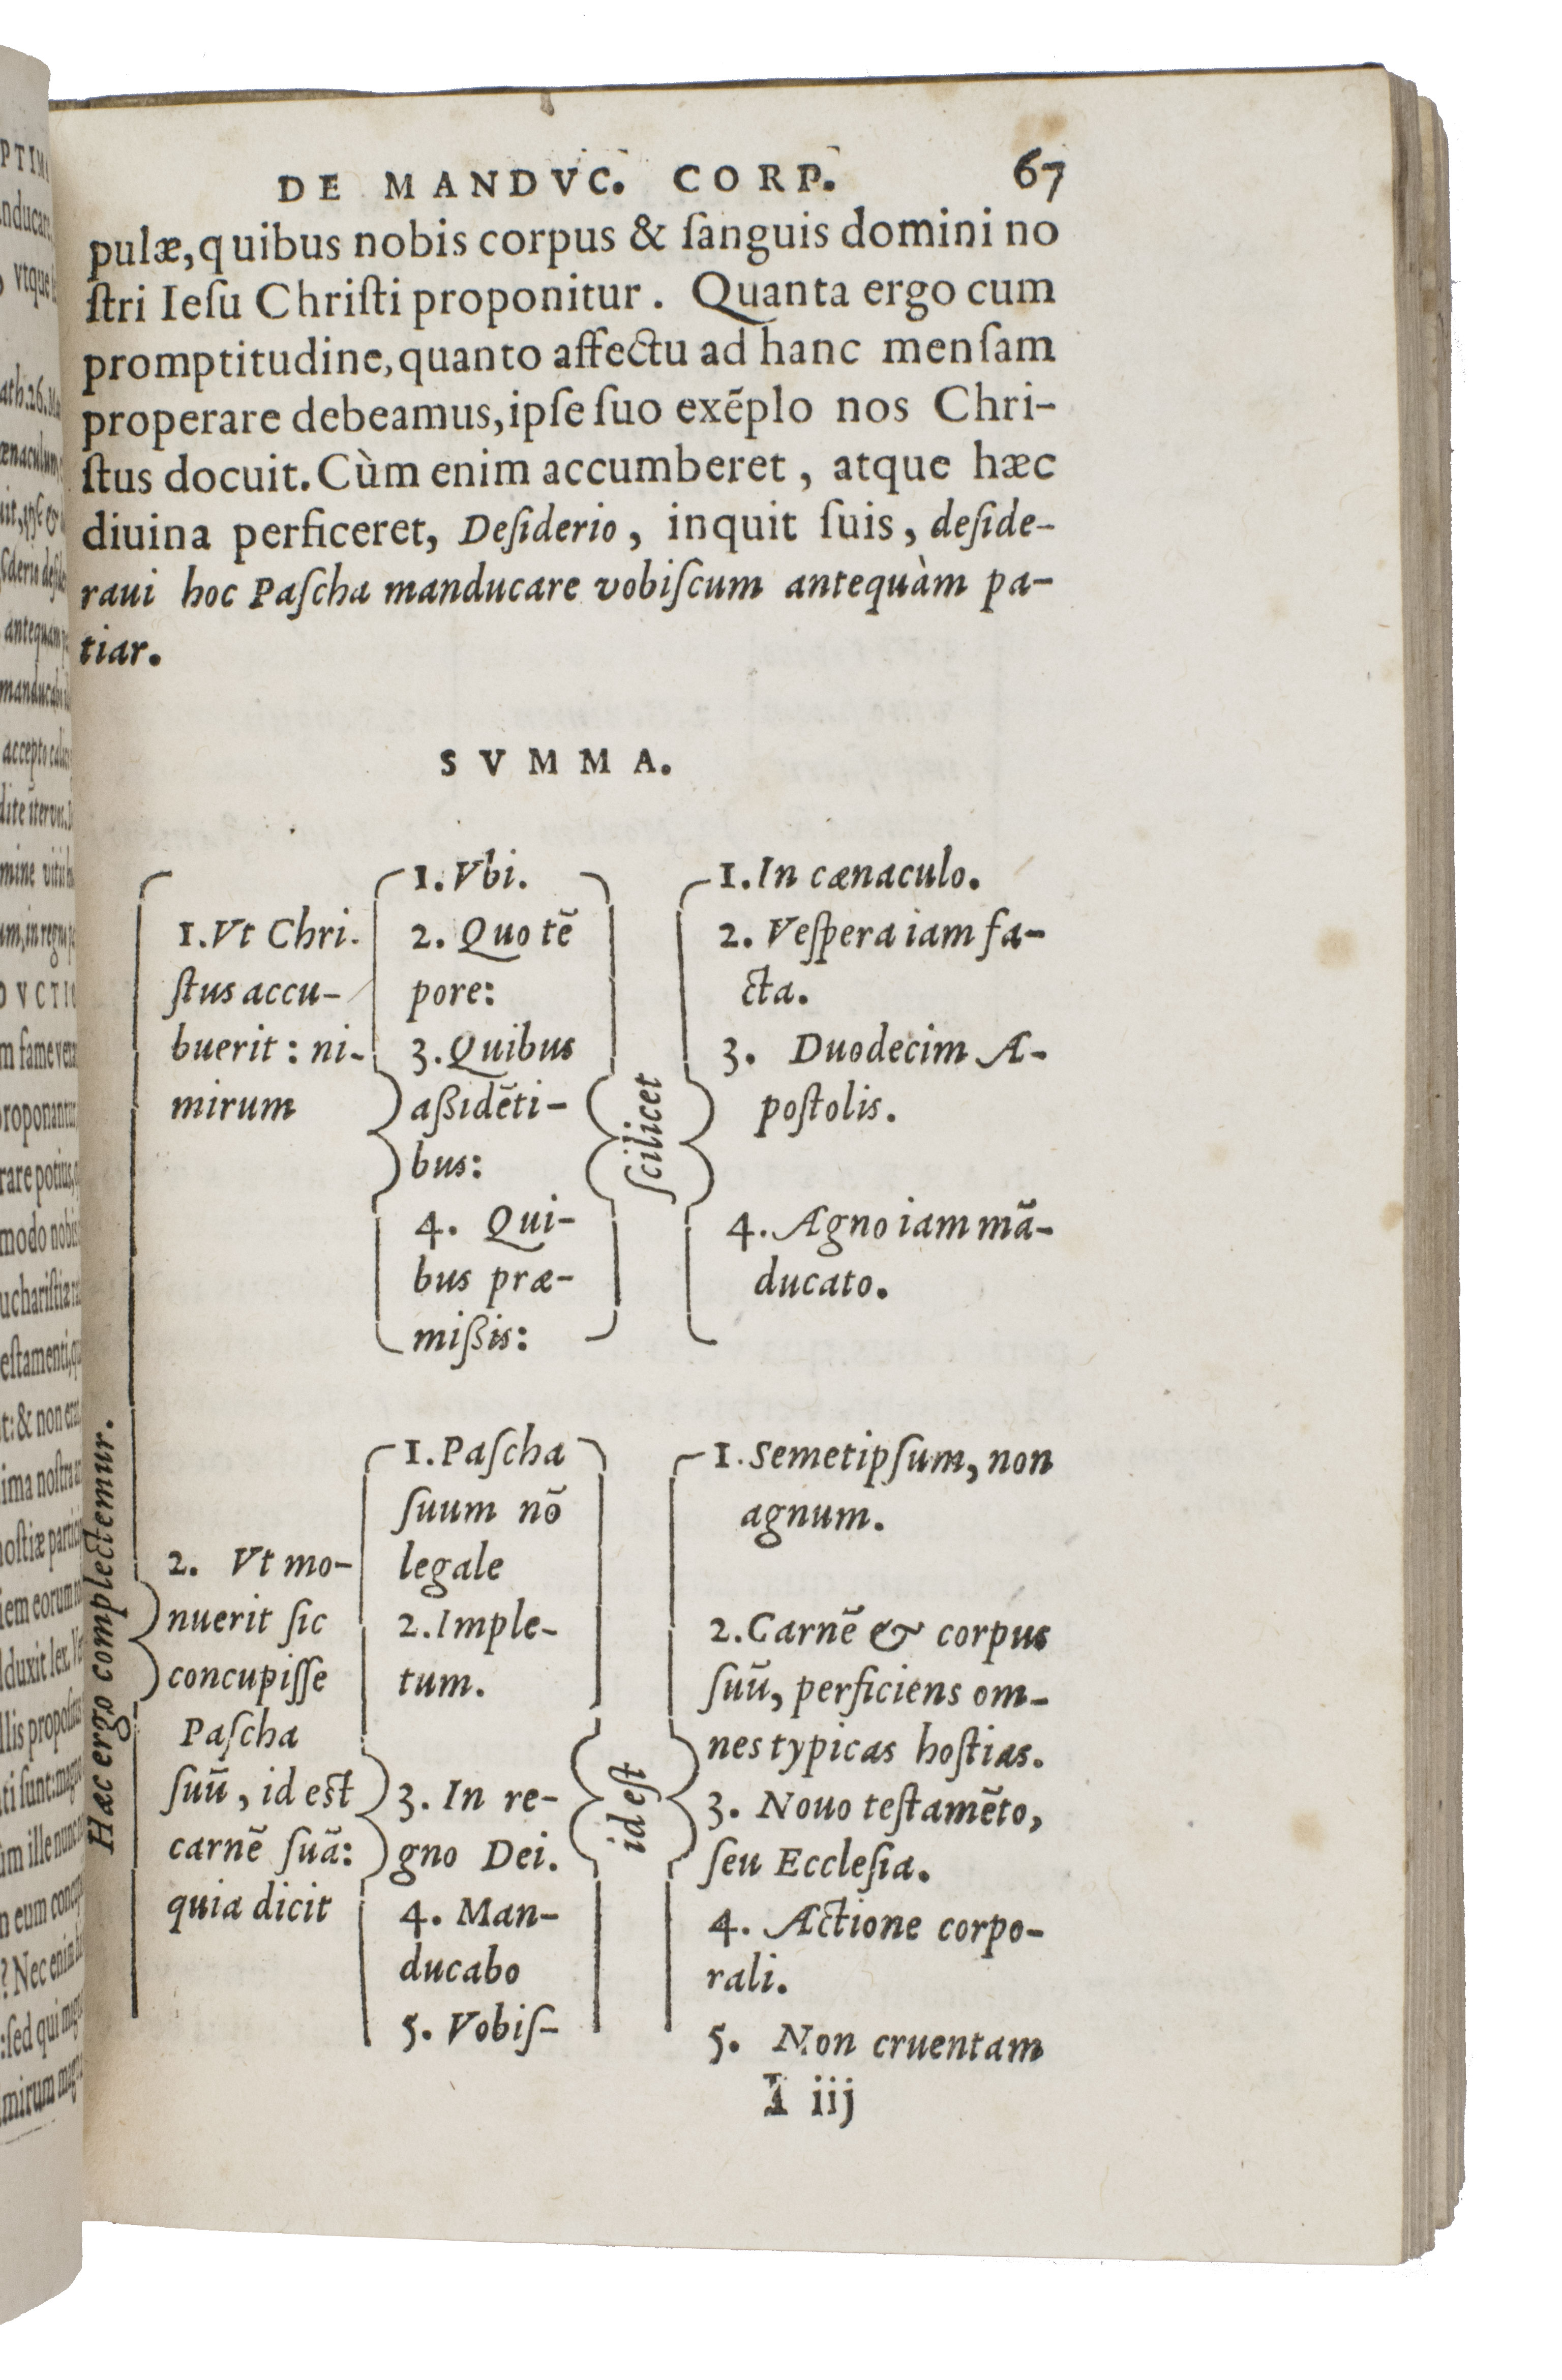 DE MANDVC. CORP. 67
pulæ,quibus nobis corpus & ſanguis domini no
ſtri Ieſu Chriſti proponitur. Quanta ergo cum
promptitudine,quanto affectu ad hanc menſam
properare debeamus,ipſe ſuo exẽplo nos Chri-
ſtus docuit. Cùm enim accumberet, atque hæc
diuina perficeret, Deſiderio, inquit ſuis, deſide-
raui hoc Paſcha manducare vobiſcum antequàm pa-
tiar.
SVMMA.
Hæc ergo complectemur.
1.Vt Chri-
ſtus accu-
buerit: ni-
mirum
1.Vbi.
2. Quo tẽ
pore:
3.Quibus
aßidẽti-
bus:
4. Qui-
bus præ-
mißis:
ſcilicet
1.In cænaculo.
2. Veſpera iam fa-
cta.
3. Duodecim A-
poſtolis.
4. Agno iam mã-
ducato.
2. Vt mo-
nuerit ſic
concupiſſe
Paſcha
ſuũ, id eſt
carnẽ ſuã:
quia dicit
1.Paſcha
ſuum nõ
legale
2.Imple-
tum.
3. In re-
gno Dei.
4. Man-
ducabo
5. Vobiſ-
id eſt
1.Semetipſum, non
agnum.
2.Carnẽ & corpus
ſuũ, perficiens om-
nes typicas hoſtias.
3. Nouo teſtamẽto,
ſeu Eccleſia.
4. Actione corpo-
rali.
5. Non cruentam
I iij